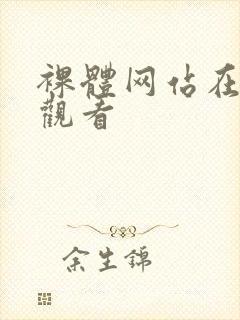 裸體网佔在
觀者
余生錦